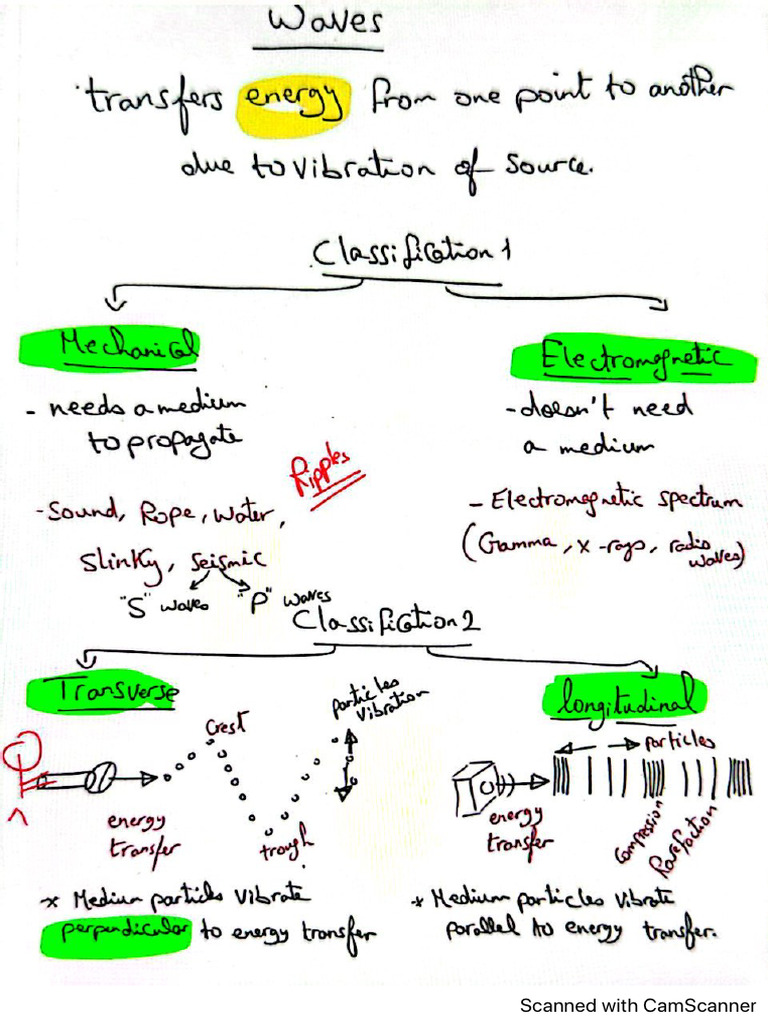 Waves
transfers energy from one point to another
due to vibration of source.
Classification 1
Mechanical
- needs a medium
to propagate
Ripples
- Sound, Rope, Water,
Slinky, seismic
"S" waves "P" waves
Electromagnetic
- doesn't need
a medium
- Electromagnetic spectrum
(Gamma, x-rays, radio
waves)
Classification 2
Transverse
Crest
particles
vibration
energy
transfer
trough
* Medium particles vibrate
perpendicular to energy transfer
longitudinal
particles
energy
transfer
Compression
Rarefaction
* Medium particles vibrate
parallel to energy transfer.
Scanned with CamScanner